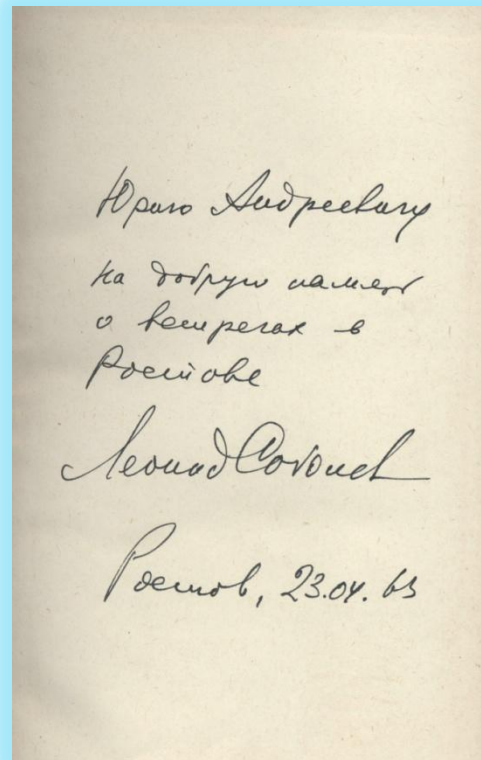 Юрию Андреевичу
на добрую память
о встречах в
Ростове
Леонид Соболев
Ростов, 23.04.63